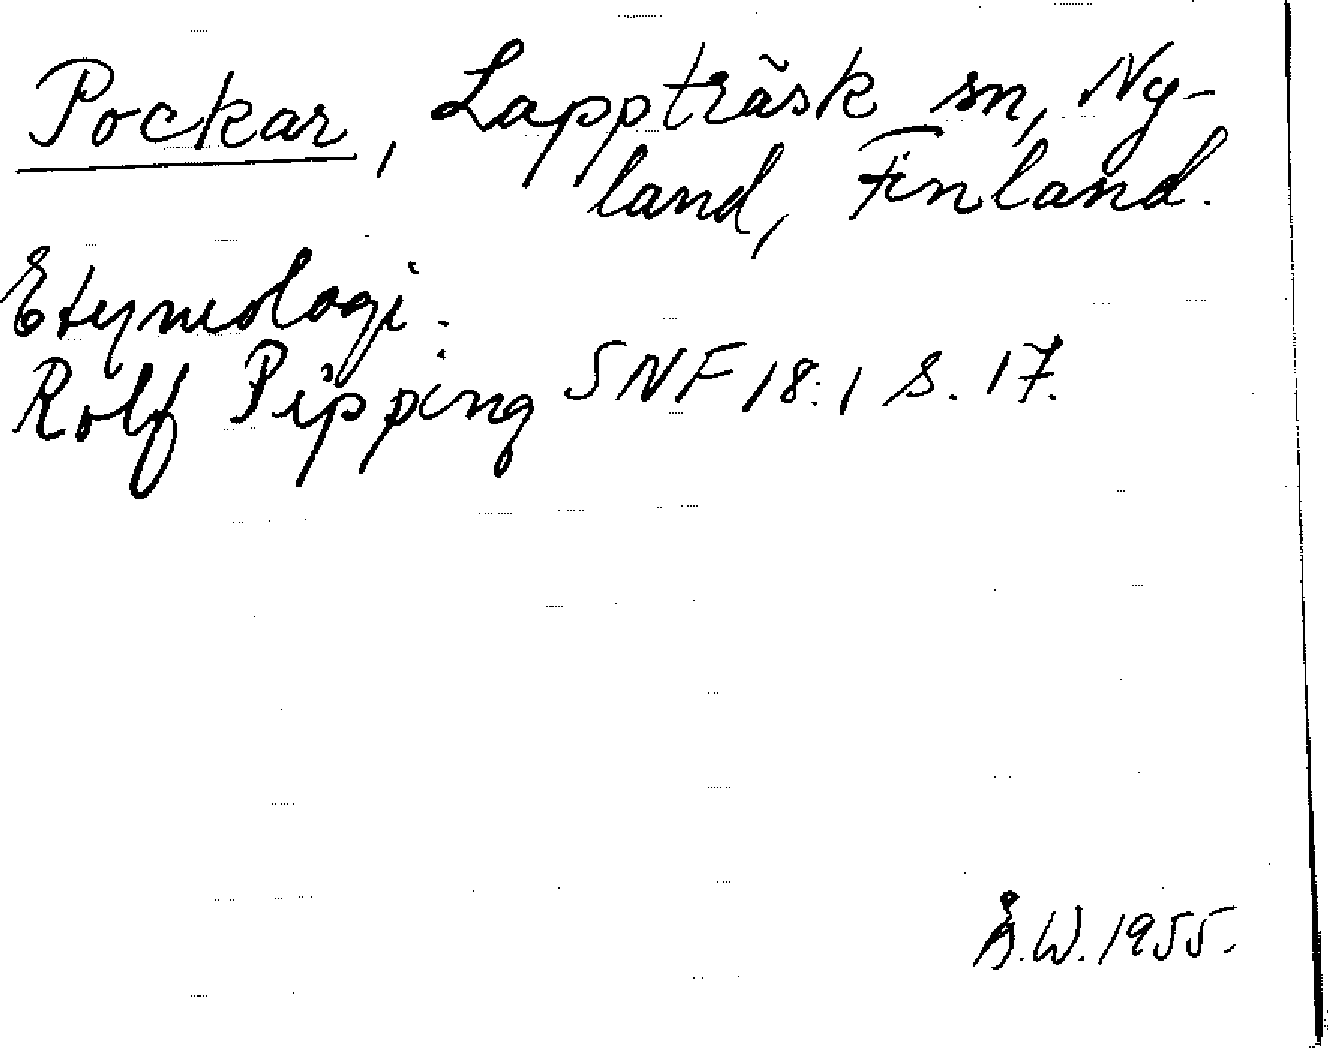 Pockar, Lappträsk sn, Ny-
land, Finland.
Etymologi.
Rolf Pipping SNF 18:1 s. 17.
Å.W. 1955.